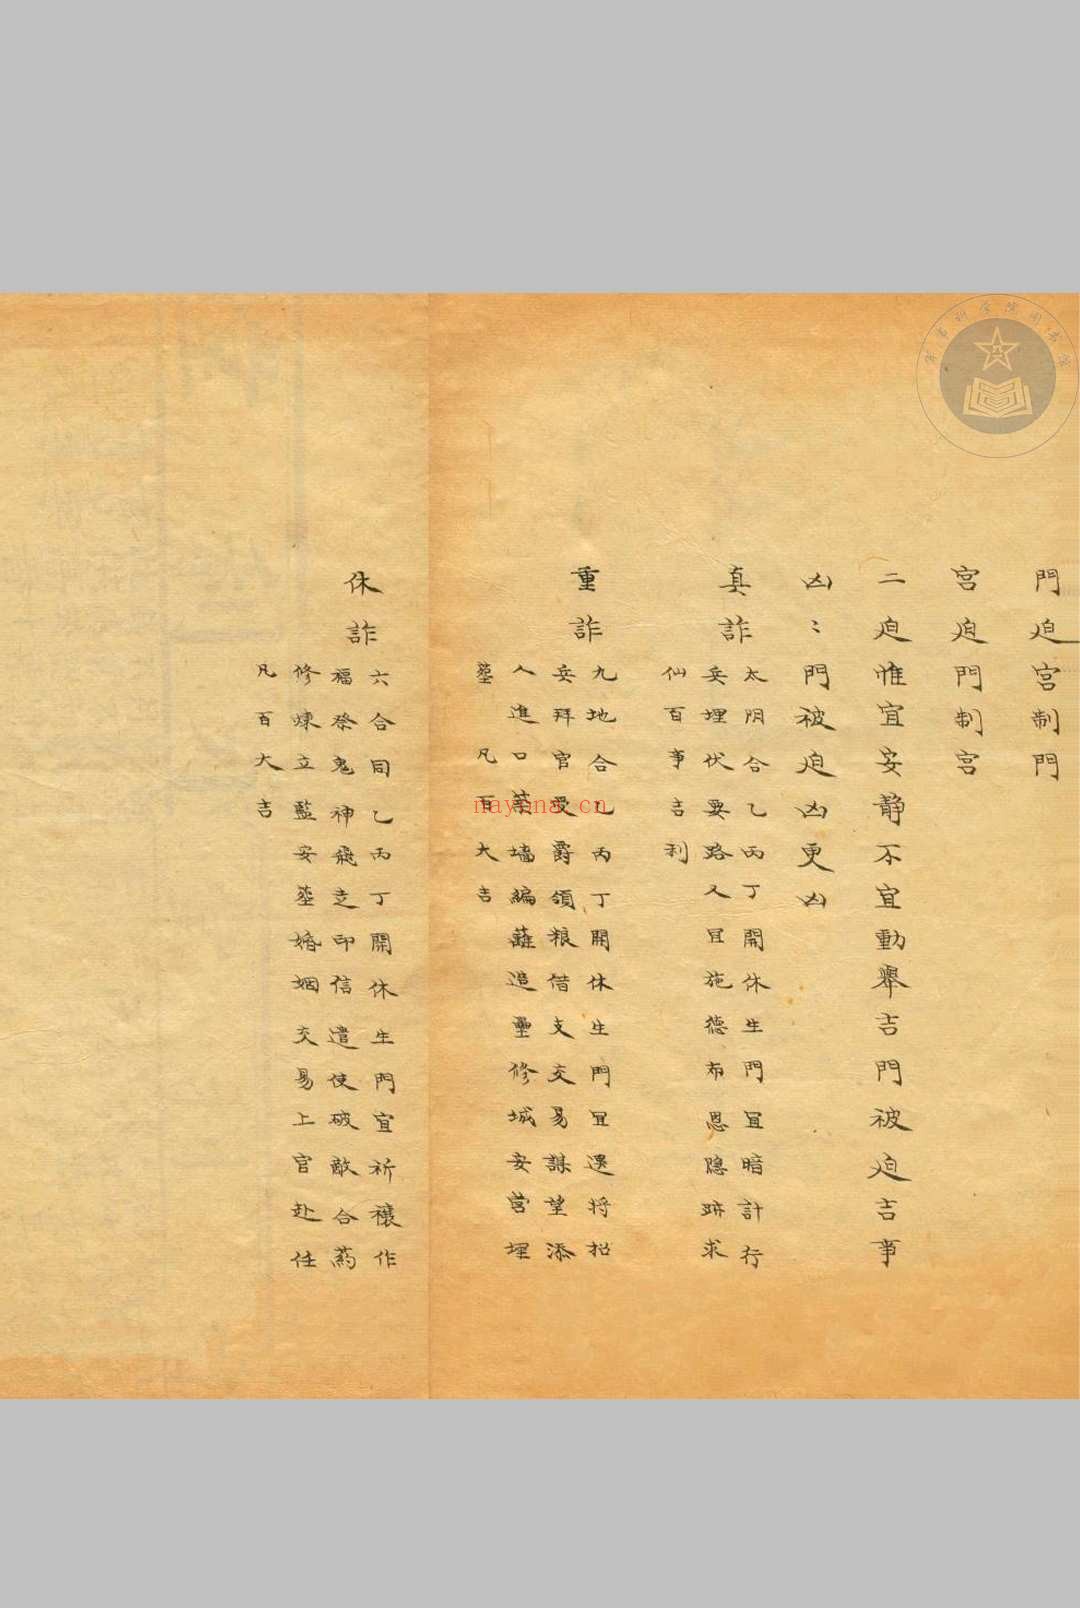 門迫宮制門
宮迫門制宮
二迫惟宜安静不宜動舉吉門被迫吉事
凶〻門被迫凶更凶
真詐
太阴合乙丙丁開休生門宜暗計行
兵埋伏要路又宜施德布恩隐跡求
仙百事吉利
重詐
九地合乙丙丁開休生門宜選将招
兵拜官受爵領粮借支交易謀望添
人進口築墙編蘺造壘修城安营埋
塟凡百大吉
休詐
六合同乙丙丁開休生門宜祈禳作
福祭鬼神飛走印信遣使破敵合葯
修煉立藍安塟婚姻交易上官赴任
凡百大吉
nayona.cn